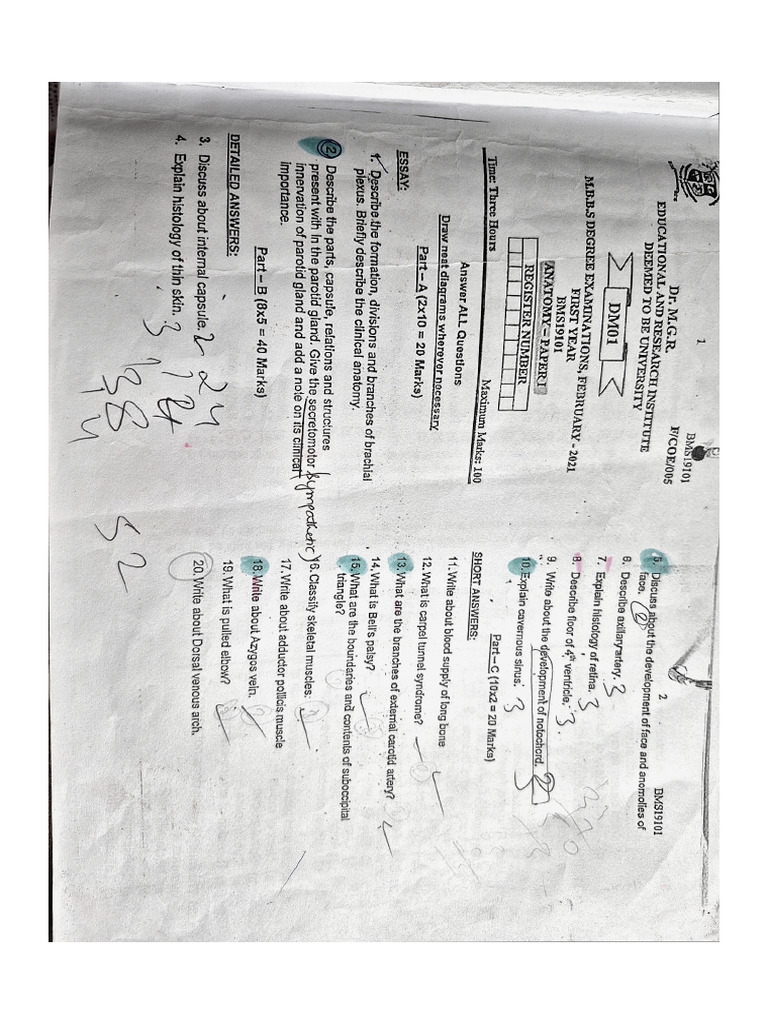 1
BMS19101
F/COE/005
Dr. M.G.R.
EDUCATIONAL AND RESEARCH INSTITUTE
DEEMED TO BE UNIVERSITY
DM01
M.B.B.S DEGREE EXAMINATIONS, FEBRUARY - 2021
FIRST YEAR
BMS19101
ANATOMY – PAPER I
REGISTER NUMBER
Time: Three Hours Maximum Marks: 100
Answer ALL Questions
Draw neat diagrams wherever necessary
Part – A (2x10 = 20 Marks)
ESSAY:
1. Describe the formation, divisions and branches of brachial
plexus. Briefly describe the clinical anatomy.
2. Describe the parts, capsule, relations and structures
present with in the parotid gland. Give the secretomotor (sympathetic)
innervation of parotid gland and add a note on its clinical
importance.
Part – B (8x5 = 40 Marks)
DETAILED ANSWERS:
3. Discuss about internal capsule. 2
4. Explain histology of thin skin. 3
24
38
52
2
BMS19101
5. Discuss about the development of face and anomolies of
face. 2
6. Describe axillary artery. 3
7. Explain histology of retina. 3
8. Describe floor of 4th ventricle. 3
9. Write about the development of notochord. 3
10. Explain cavernous sinus. 3
Part – C (10x2 = 20 Marks)
SHORT ANSWERS:
11. Write about blood supply of long bone
12. What is carpel tunnel syndrome?
13. What are the branches of external carotid artery?
14. What is Bell's palsy?
15. What are the boundaries and contents of suboccipital
triangle?
16. Classify skeletal muscles.
17. Write about adductor pollicis muscle
18. Write about Azygos vein.
19. What is pulled elbow?
20. Write about Dorsal venous arch.